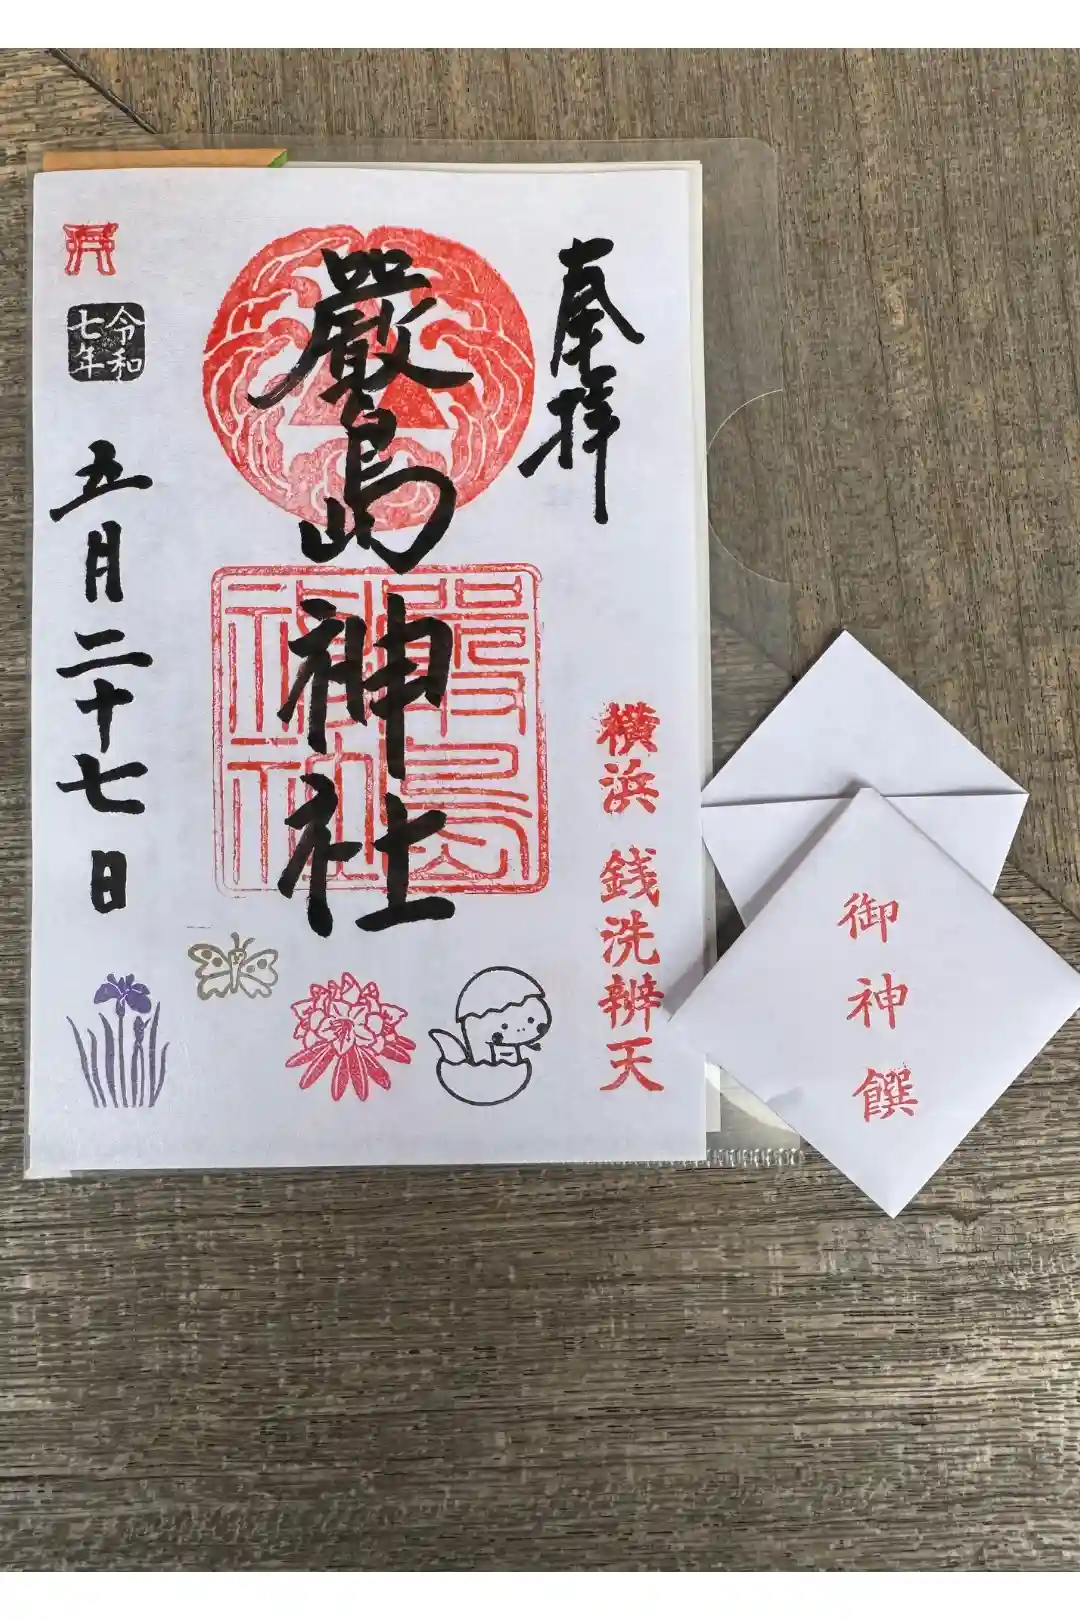 奉拝
厳島神社
嚴島
神社
令和
七年
五月二十七日
横浜 銭洗辨天
御神饌